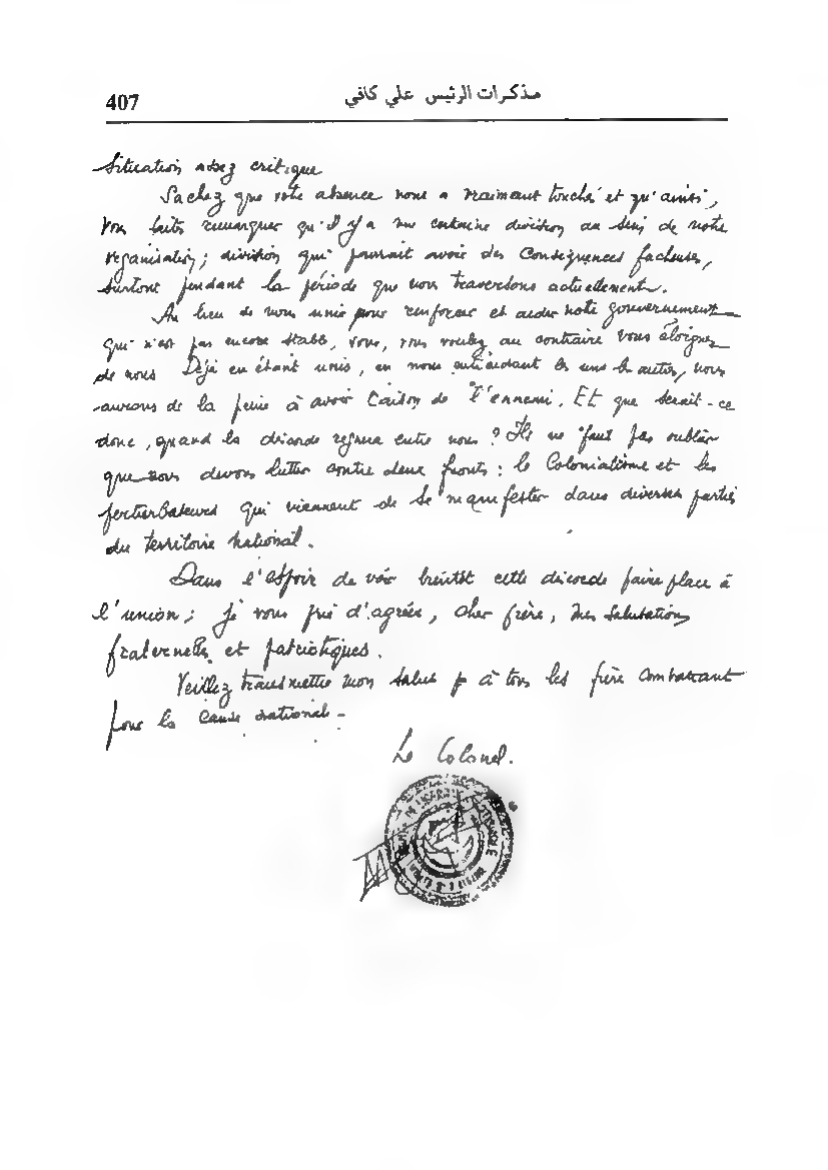 407
مذكرات الرئيس علي كافي
Situation assez critique
Sachez que votre absence nous a vraimant touché et qu'ainsi,
vous faits remarquer qu'il y a une certaine division au sein de notre
organisation; division qui pourrait avoir des conséquences facheuses,
surtout pendant la période que nous traversons actuellement.
Au lieu de nous unir pour renforcer et aider notre gouvernement
qui n'est pas encore stable, vous, vous voulez au contraire vous éloigner
de nous Déjà en étant unis, en nous entraidant les uns les autres, nous
aurons de la peine à avoir raison de l'ennemi. Et que serait-ce
donc, quand la discorde regnera entre nous ? Il ne faut pas oublier
que nous devons lutter contre deux fronts : le Colonialisme et les
perturbateurs qui viennent de se manifester dans diverses parties
du territoire national.
Dans l'espoir de voir bientôt cette discorde faire place à
l'union ; je vous prie d'agréer, cher frère, mes salutations
fraternelles et patriotiques.
Veillez transmettre mon salut à tous les frère combattant
pour la cause national -
Le Colonel.